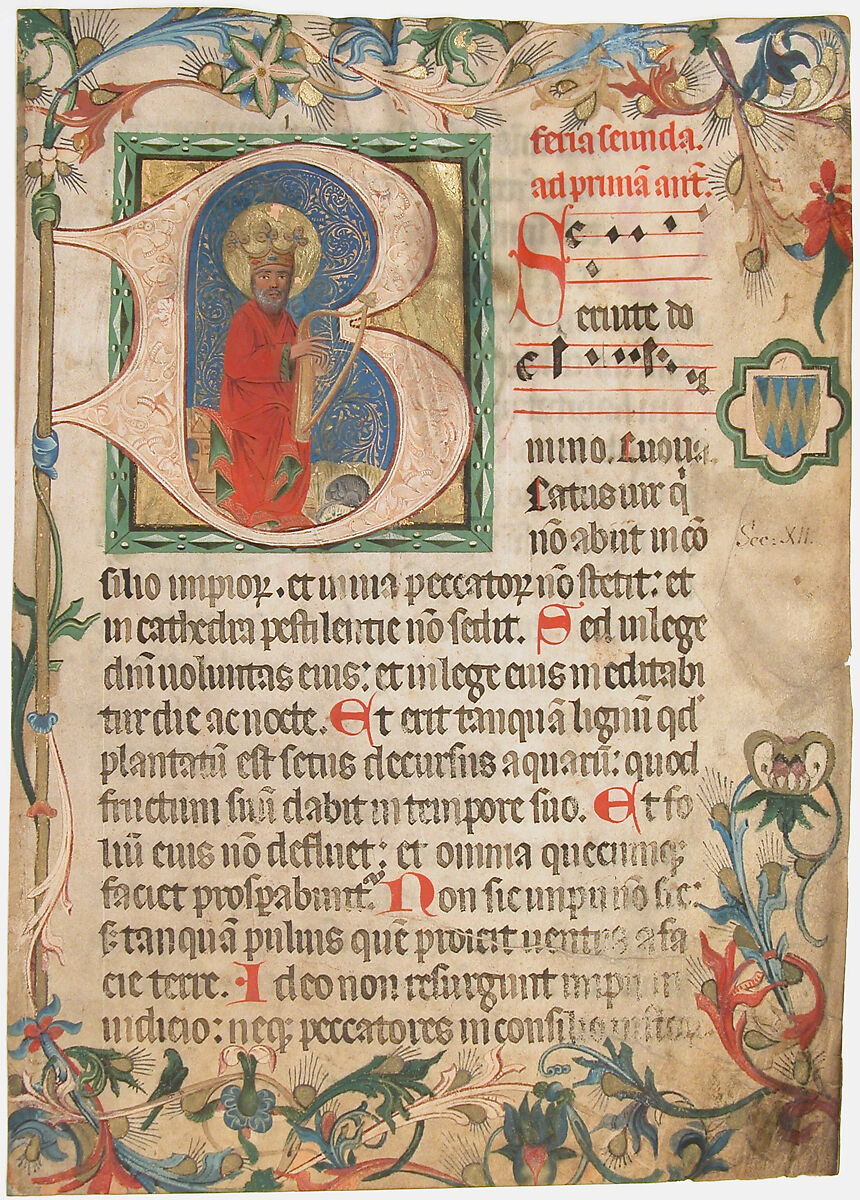 feria scunda.
ad primā ant̄.
Seruite do
mino. Euoua.
Beatus uir q̇
nō abiit in cō
silio impioꝝ. et in uia peccatoꝝ nō stetit: et
in cathedra pestilentie nō sedit. Sed in lege
dn̄i uoluntas eius: et in lege eius meditabi
tur die ac nocte. Et erit tanquā lignū qd̓
plantatū est secus decursus aquarū: quod
fructum suū dabit in tempore suo. Et fo
liū eius nō defluet: et omnia quecumqꝫ
faciet prosꝑabunt᷑. Non sic impii nō sic:
s; tanquā puluis quē proicit uentus a fa
cie terre. Ideo non resurgunt impii in
iudicio: neqꝫ peccatores in consilio
Sec: XII.